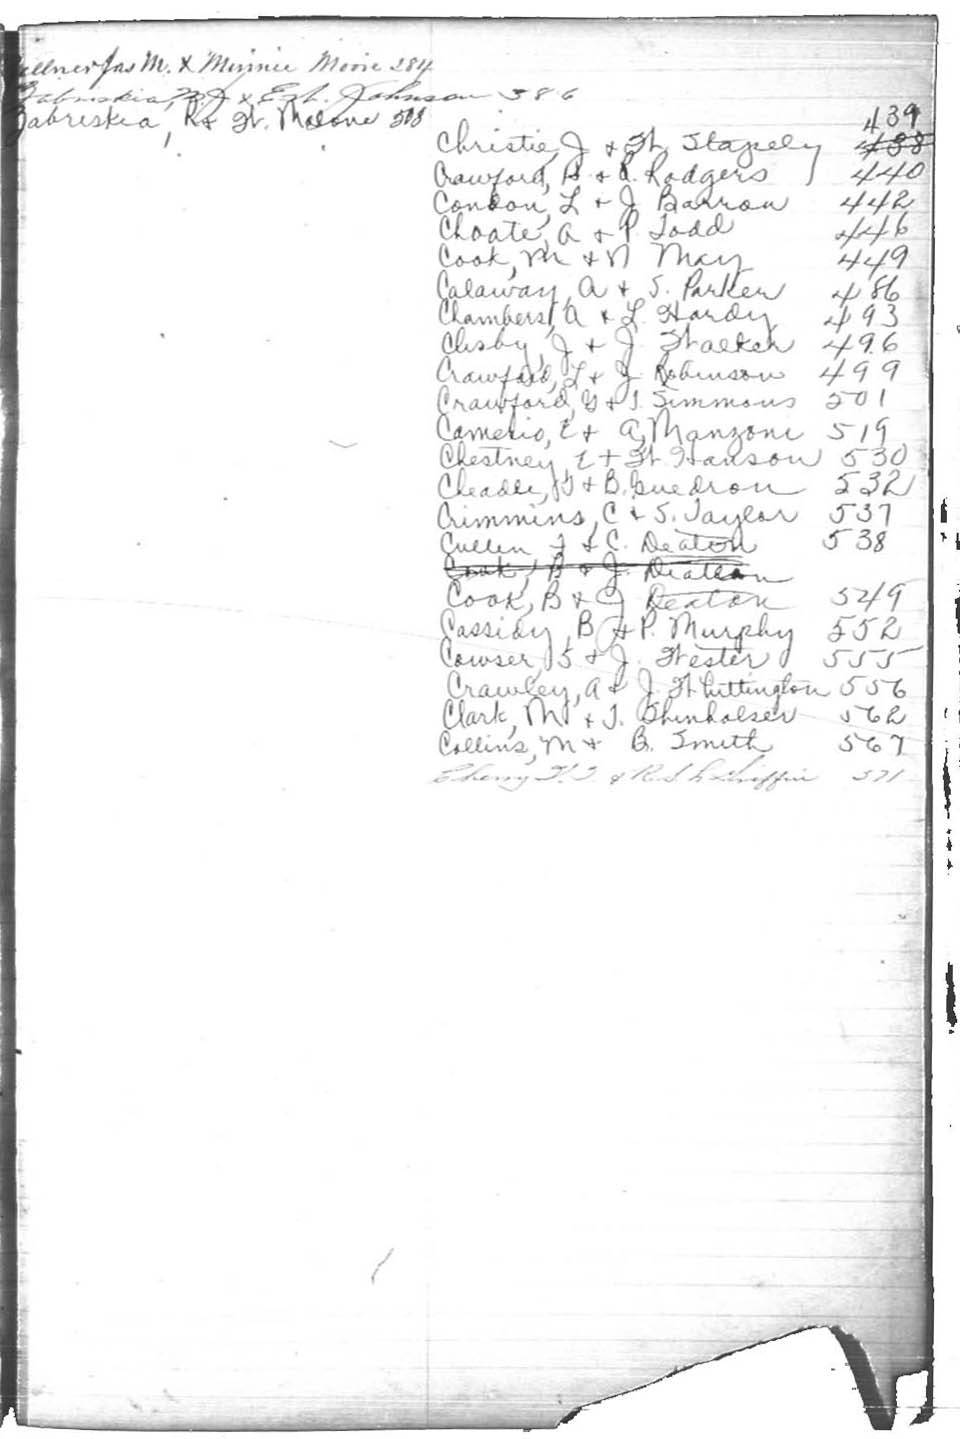 Jas M. & Minnie Moore 284
& Johnson 386
Zabriskia, R & W. Malone 508
439
Christie, J & W. Stapely 438
Crawford, B. & R. Rodgers 440
Condon, L & J. Barron 442
Choate, A & P Todd 446
Cook, M & N May 449
Calaway, A & S. Parker 486
Chambers, A & L. Hardy 493
Clisby, J & J. Walker 496
Crawford, L & J. Robinson 499
Crawford, G & T. Simmons 501
Camerio, E & A, Manzoni 519
Chestney, E & W. Hanson 530
Cheadle, G & B. Guedron 532
Crimmins, C & S. Taylor 537
Cullen & C. Deaton 538
Cook, B & J. Deaton
Cook, B & J Deaton 549
Cassidy, B & P. Murphy 552
Cowser, S & J. Wester 555
Crawley, A & J. Whittington 556
Clark, M & T. Shinholser 562
Collins, M & B. Smith 567
Cherry & Griffin 571